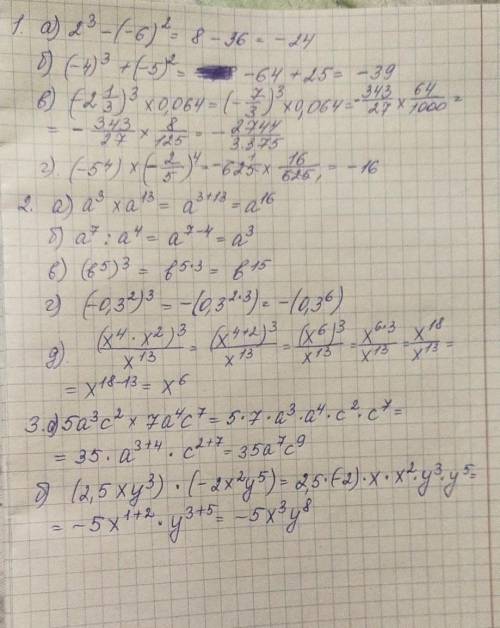 1. а) 2³ - (-6)² = 8 - 36 = -24
б) (-4)³ + (-5)² = -64 + 25 = -39
в) (-2 1/3)³ × 0,064 = (-7/3)³ × 0,064 = -343/27 × 64/1000 =
= -343/27 × 8/125 = -2744/3375
г). (-5⁴) × (-2/5)⁴ = -625¹ × 16/625₁ = -16
2. а) a³ × a¹³ = a³⁺¹³ = a¹⁶
б) a⁷ : a⁴ = a⁷⁻⁴ = a³
в) (в⁵)³ = в⁵·³ = в¹⁵
г) (-0,3²)³ = -(0,3²·³) = -(0,3⁶)
д). (x⁴ · x²)³/x¹³ = (x⁴⁺²)³/x¹³ = (x⁶)³/x¹³ = x⁶·³/x¹³ = x¹⁸/x¹³ =
= x¹⁸⁻¹³ = x⁶
3. а) 5a³c² × 7a⁴c⁷ = 5 · 7 · a³ · a⁴ · c² · c⁷ =
= 35 · a³⁺⁴ · c²⁺⁷ = 35a⁷c⁹
б) (2,5xy³) · (-2x²y⁵) = 2,5 · (-2) · x · x² · y³ · y⁵ =
= -5x¹⁺² · y³⁺⁵ = -5x³y⁸